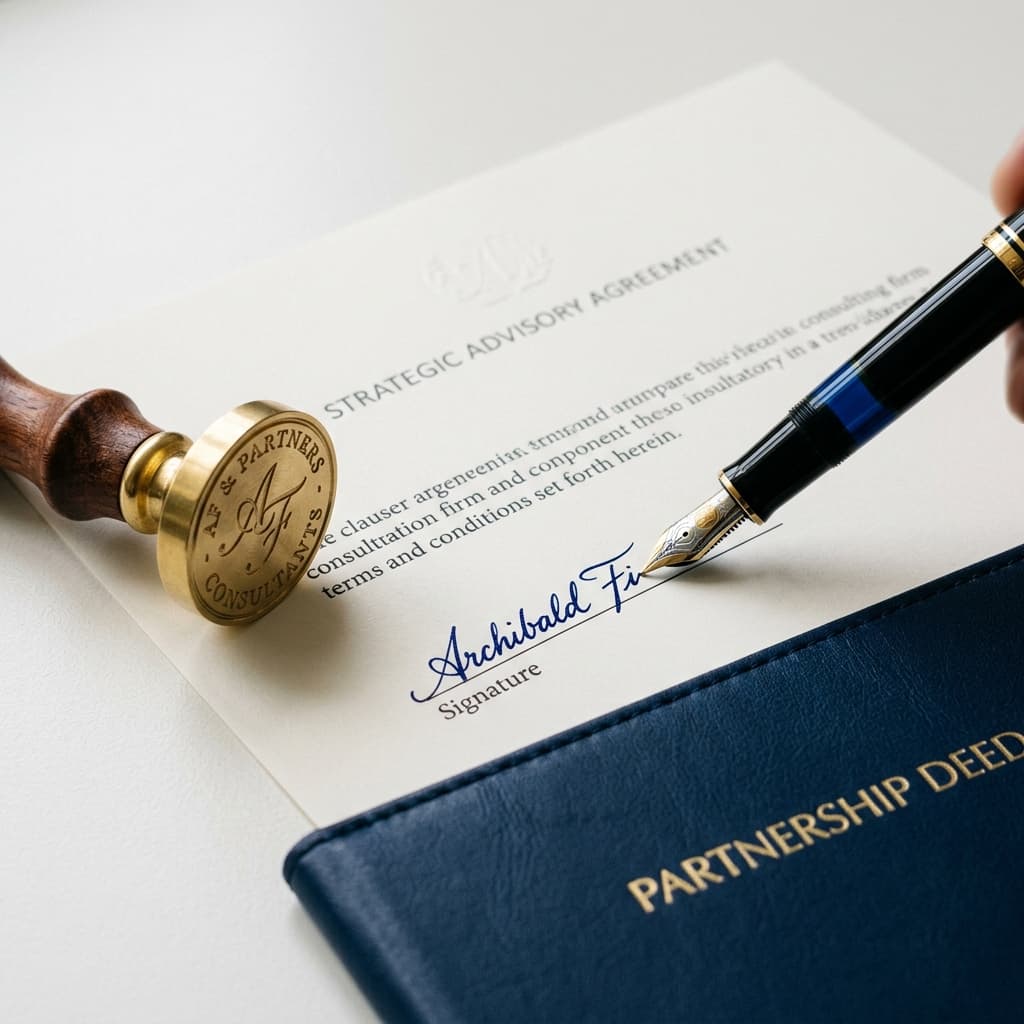 STRATEGIC ADVISORY AGREEMENT
clauser argeneenian and this consulting firm
consultration firm and component these insultatory in a
terms and conditions set forth herein.
Archibald Fi
Signature
· AF & PARTNERS ·
CONSULTANTS
AF
PARTNERSHIP DEED